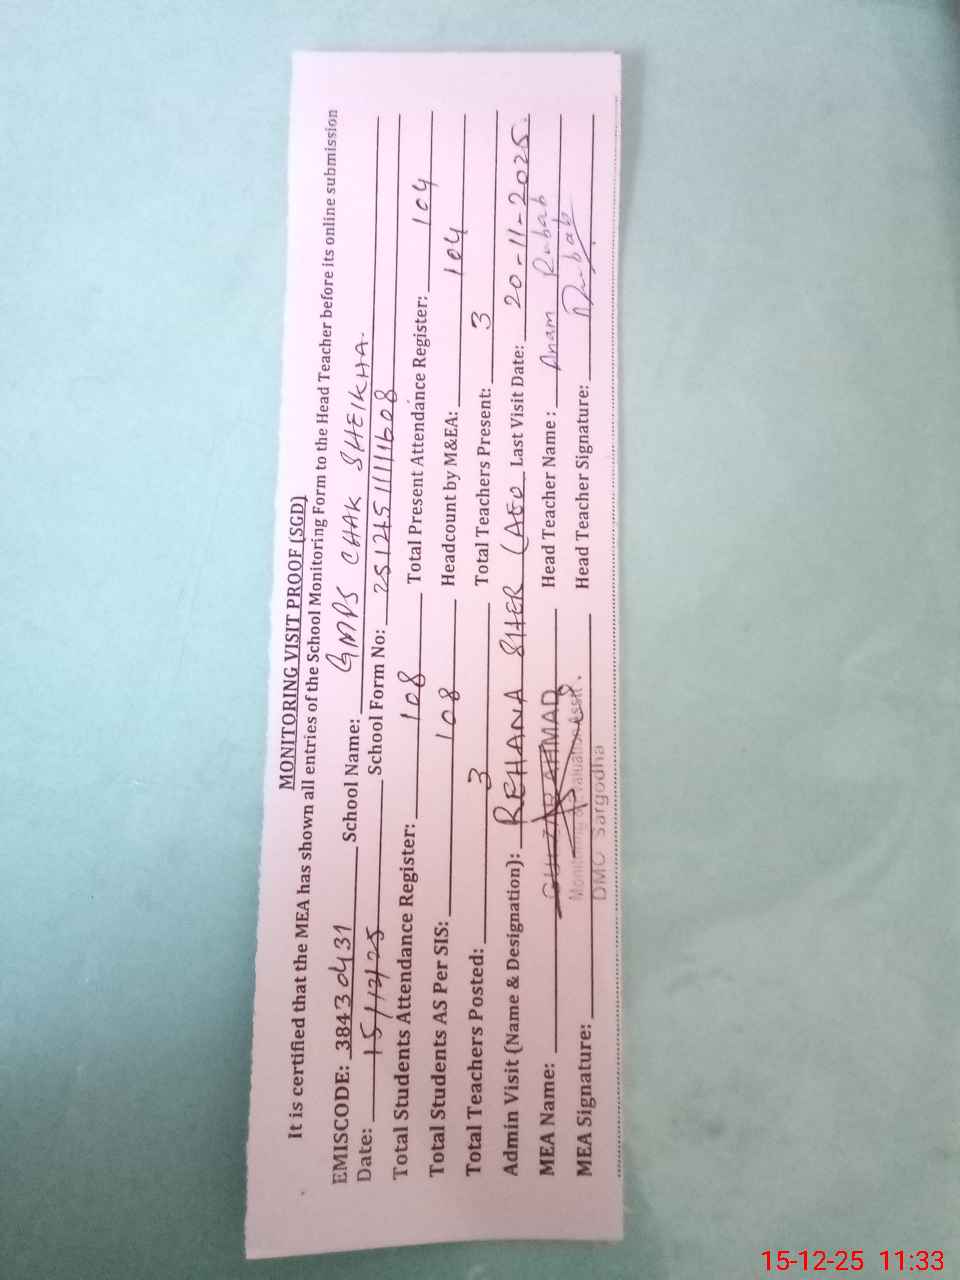 MONITORING VISIT PROOF (SGD)
It is certified that the MEA has shown all entries of the School Monitoring Form to the Head Teacher before its online submission
EMISCODE: 38430431 School Name: GMPS CHAK SHEIKHA.
Date: 15/12/25 School Form No:
Total Students Attendance Register: 108 Total Present Attendance Register: 104
Total Students AS Per SIS: 108 Headcount by M&EA: 104
Total Teachers Posted: 3 Total Teachers Present: 3
Admin Visit (Name & Designation): REHANA SHER (AEO Last Visit Date: 20-11-2025.
MEA Name: GULZAR AHMAD Head Teacher Name : Anam Rubab
Monitoring & Evaluation Asstt.
MEA Signature: Head Teacher Signature: Rubab
DMO Sargodha
15-12-25 11:33